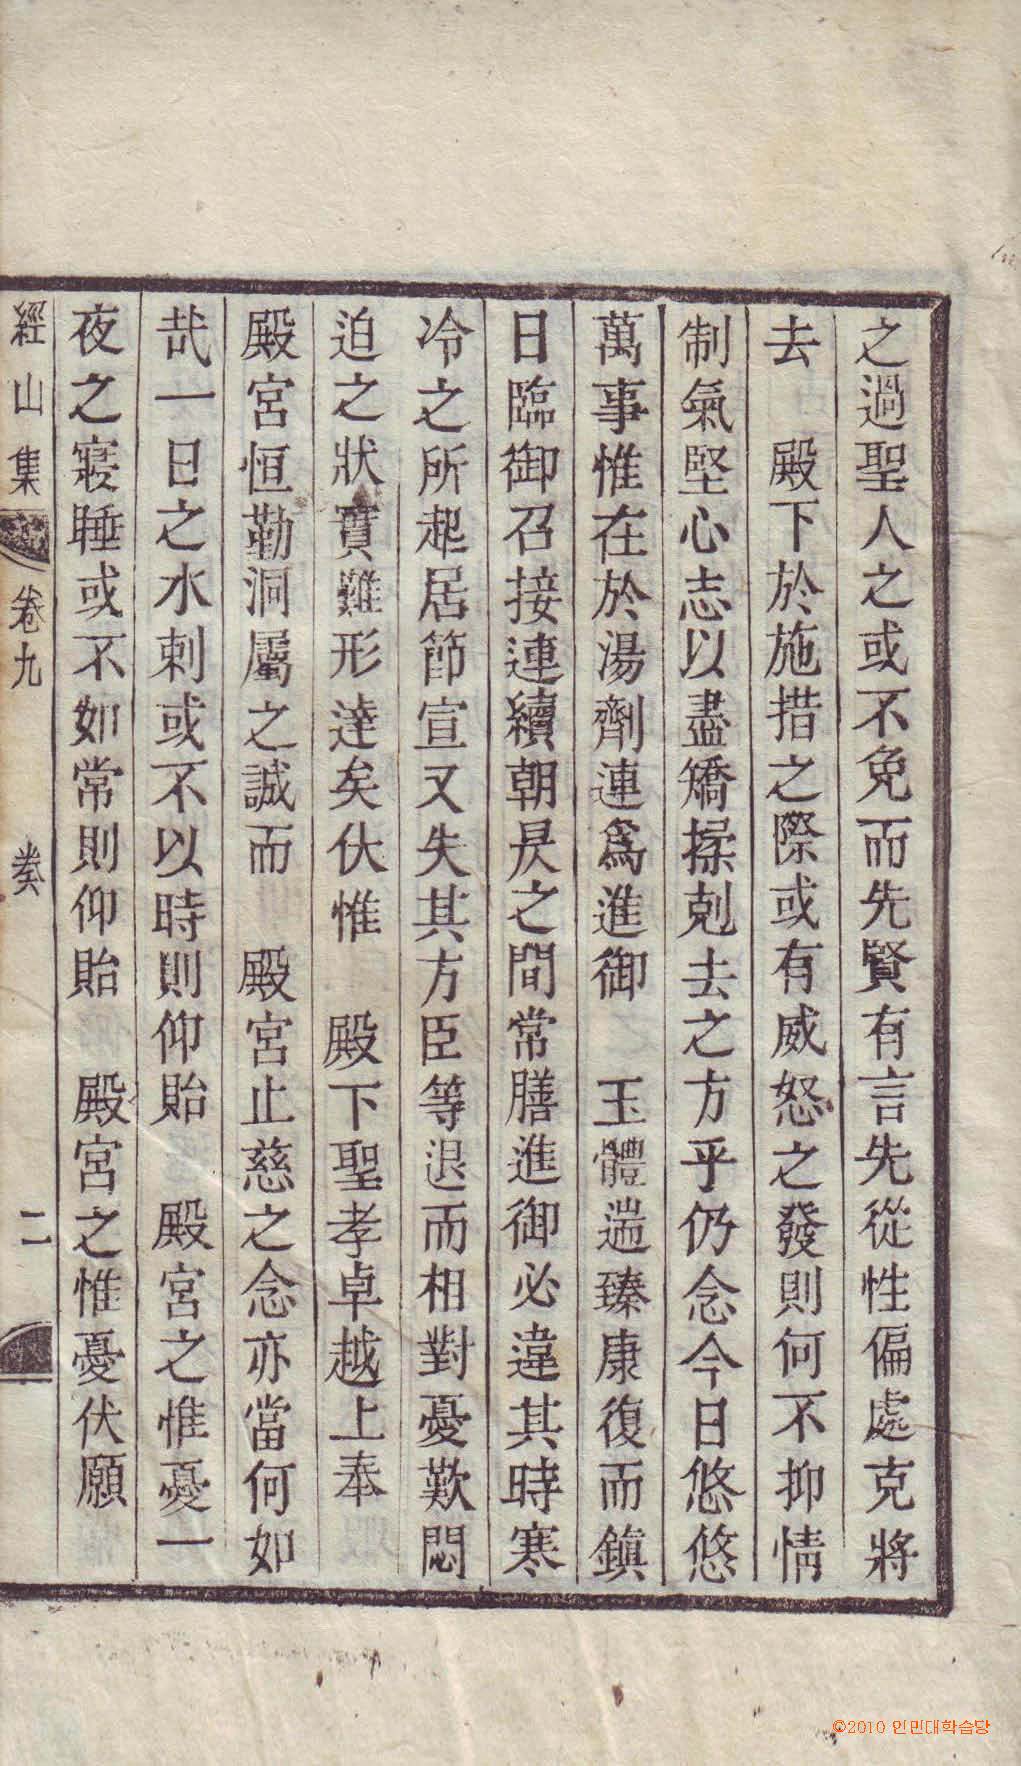 之過聖人之或不免而先賢有言先從性偏處克將
去　殿下於施措之際或有威怒之發則何不抑情
制氣堅心志以盡矯揉剋去之方乎仍念今日悠悠
萬事惟在於湯劑連爲進御　玉體遄臻康復而鎭
日臨御召接連續朝昃之間常膳進御必違其時寒
冷之所起居節宣又失其方臣等退而相對憂歎悶
迫之狀實難形達矣伏惟　殿下聖孝卓越上奉
殿宮恒勤洞屬之誠而　殿宮止慈之念亦當何如
哉一日之水剌或不以時則仰貽　殿宮之惟憂一
夜之寢睡或不如常則仰貽　殿宮之惟憂伏願
經山集　卷九　奏　二
©2010 인민대학습당